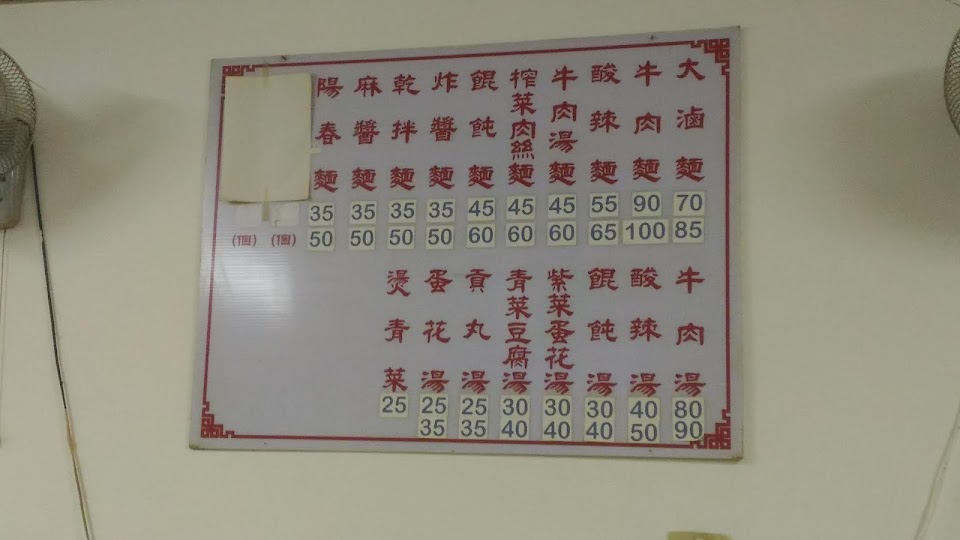 大滷麵 70 85
牛肉麵 90 100
酸辣麵 55 65
牛肉湯麵 45 60
榨菜肉絲麵 45 60
餛飩麵 45 60
炸醬麵 35 50
乾拌麵 35 50
麻醬麵 35 50
陽春麵 35 50
(個)
(個)
牛肉湯 80 90
酸辣湯 40 50
餛飩湯 30 40
紫菜蛋花湯 30 40
青菜豆腐湯 30 40
貢丸湯 25 35
蛋花湯 25 35
燙青菜 25